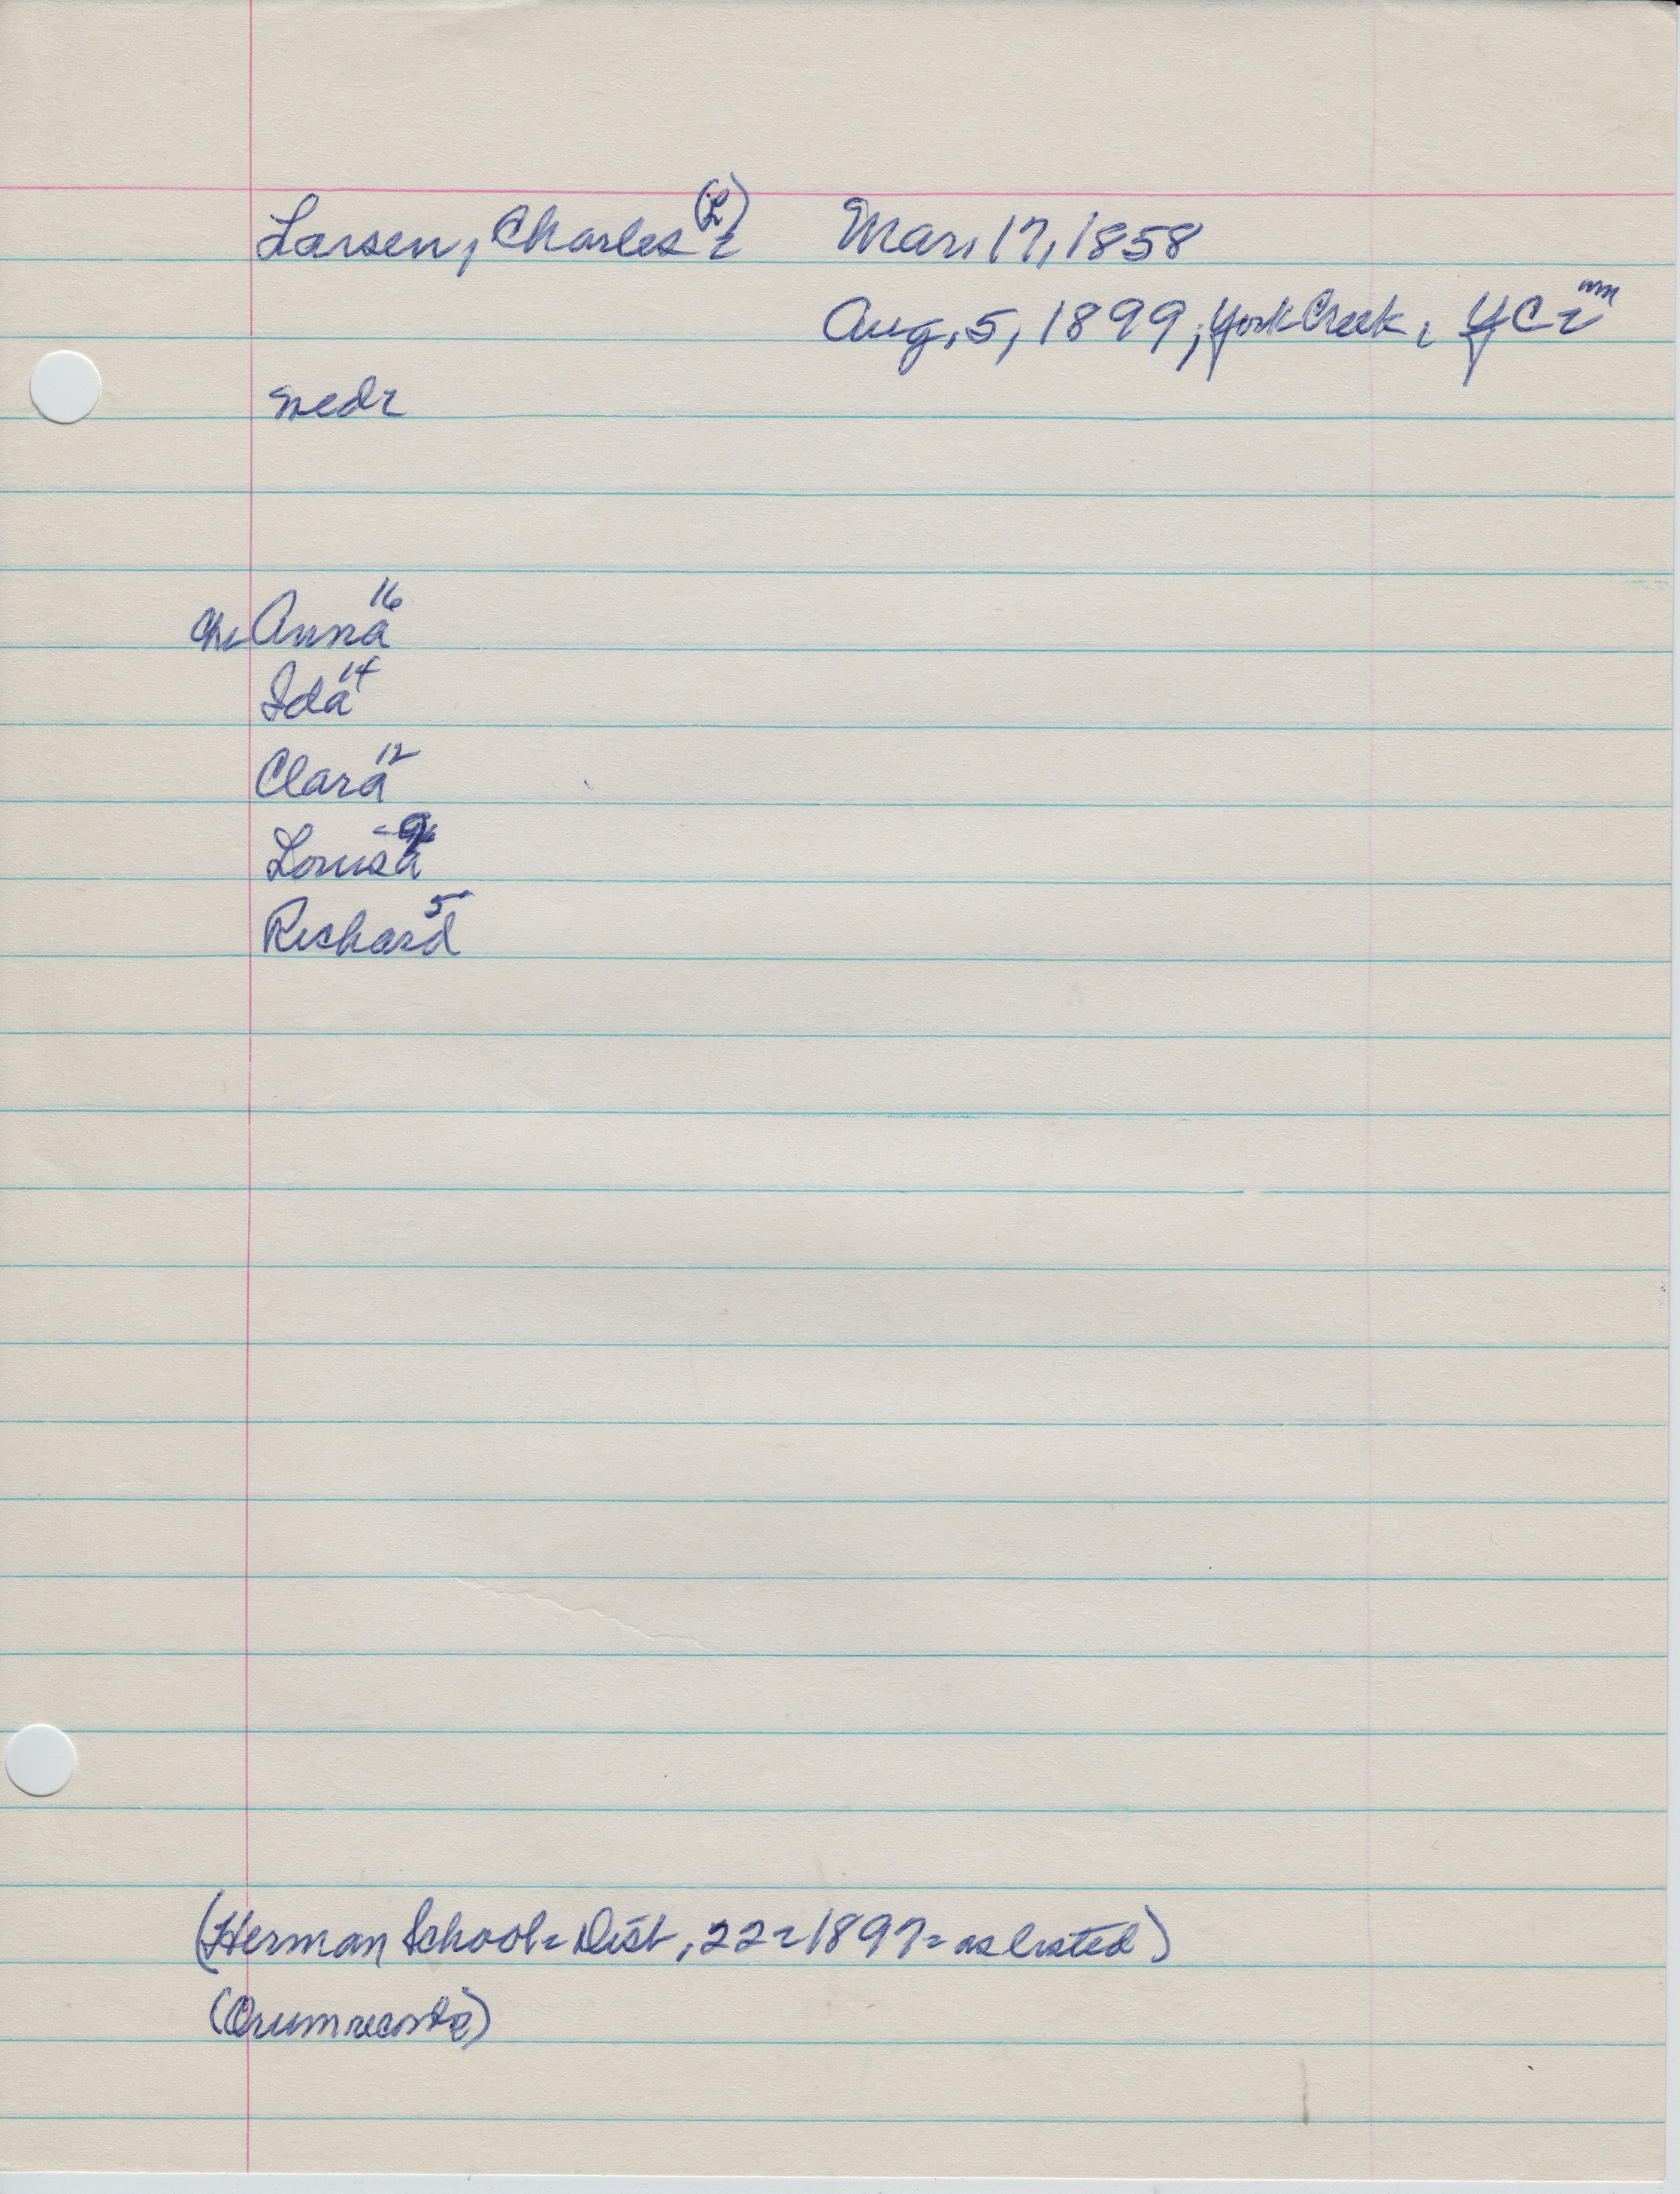 Larsen, Charles (L) Mar. 17, 1858
Aug. 5, 1899, York Creek, YC
Anna 16
Ida 14
Clara 12
Louisa 9
Richard 5
(Herman School = Dist. 22 = 1897 = as listed)
(Orum records)